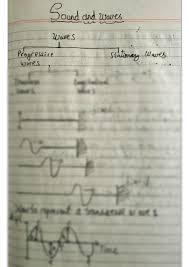 Sound and waves
Waves
Progressive Stationary Waves
waves
Transverse Longitudinal
waves waves
represent a transverse wave
Time